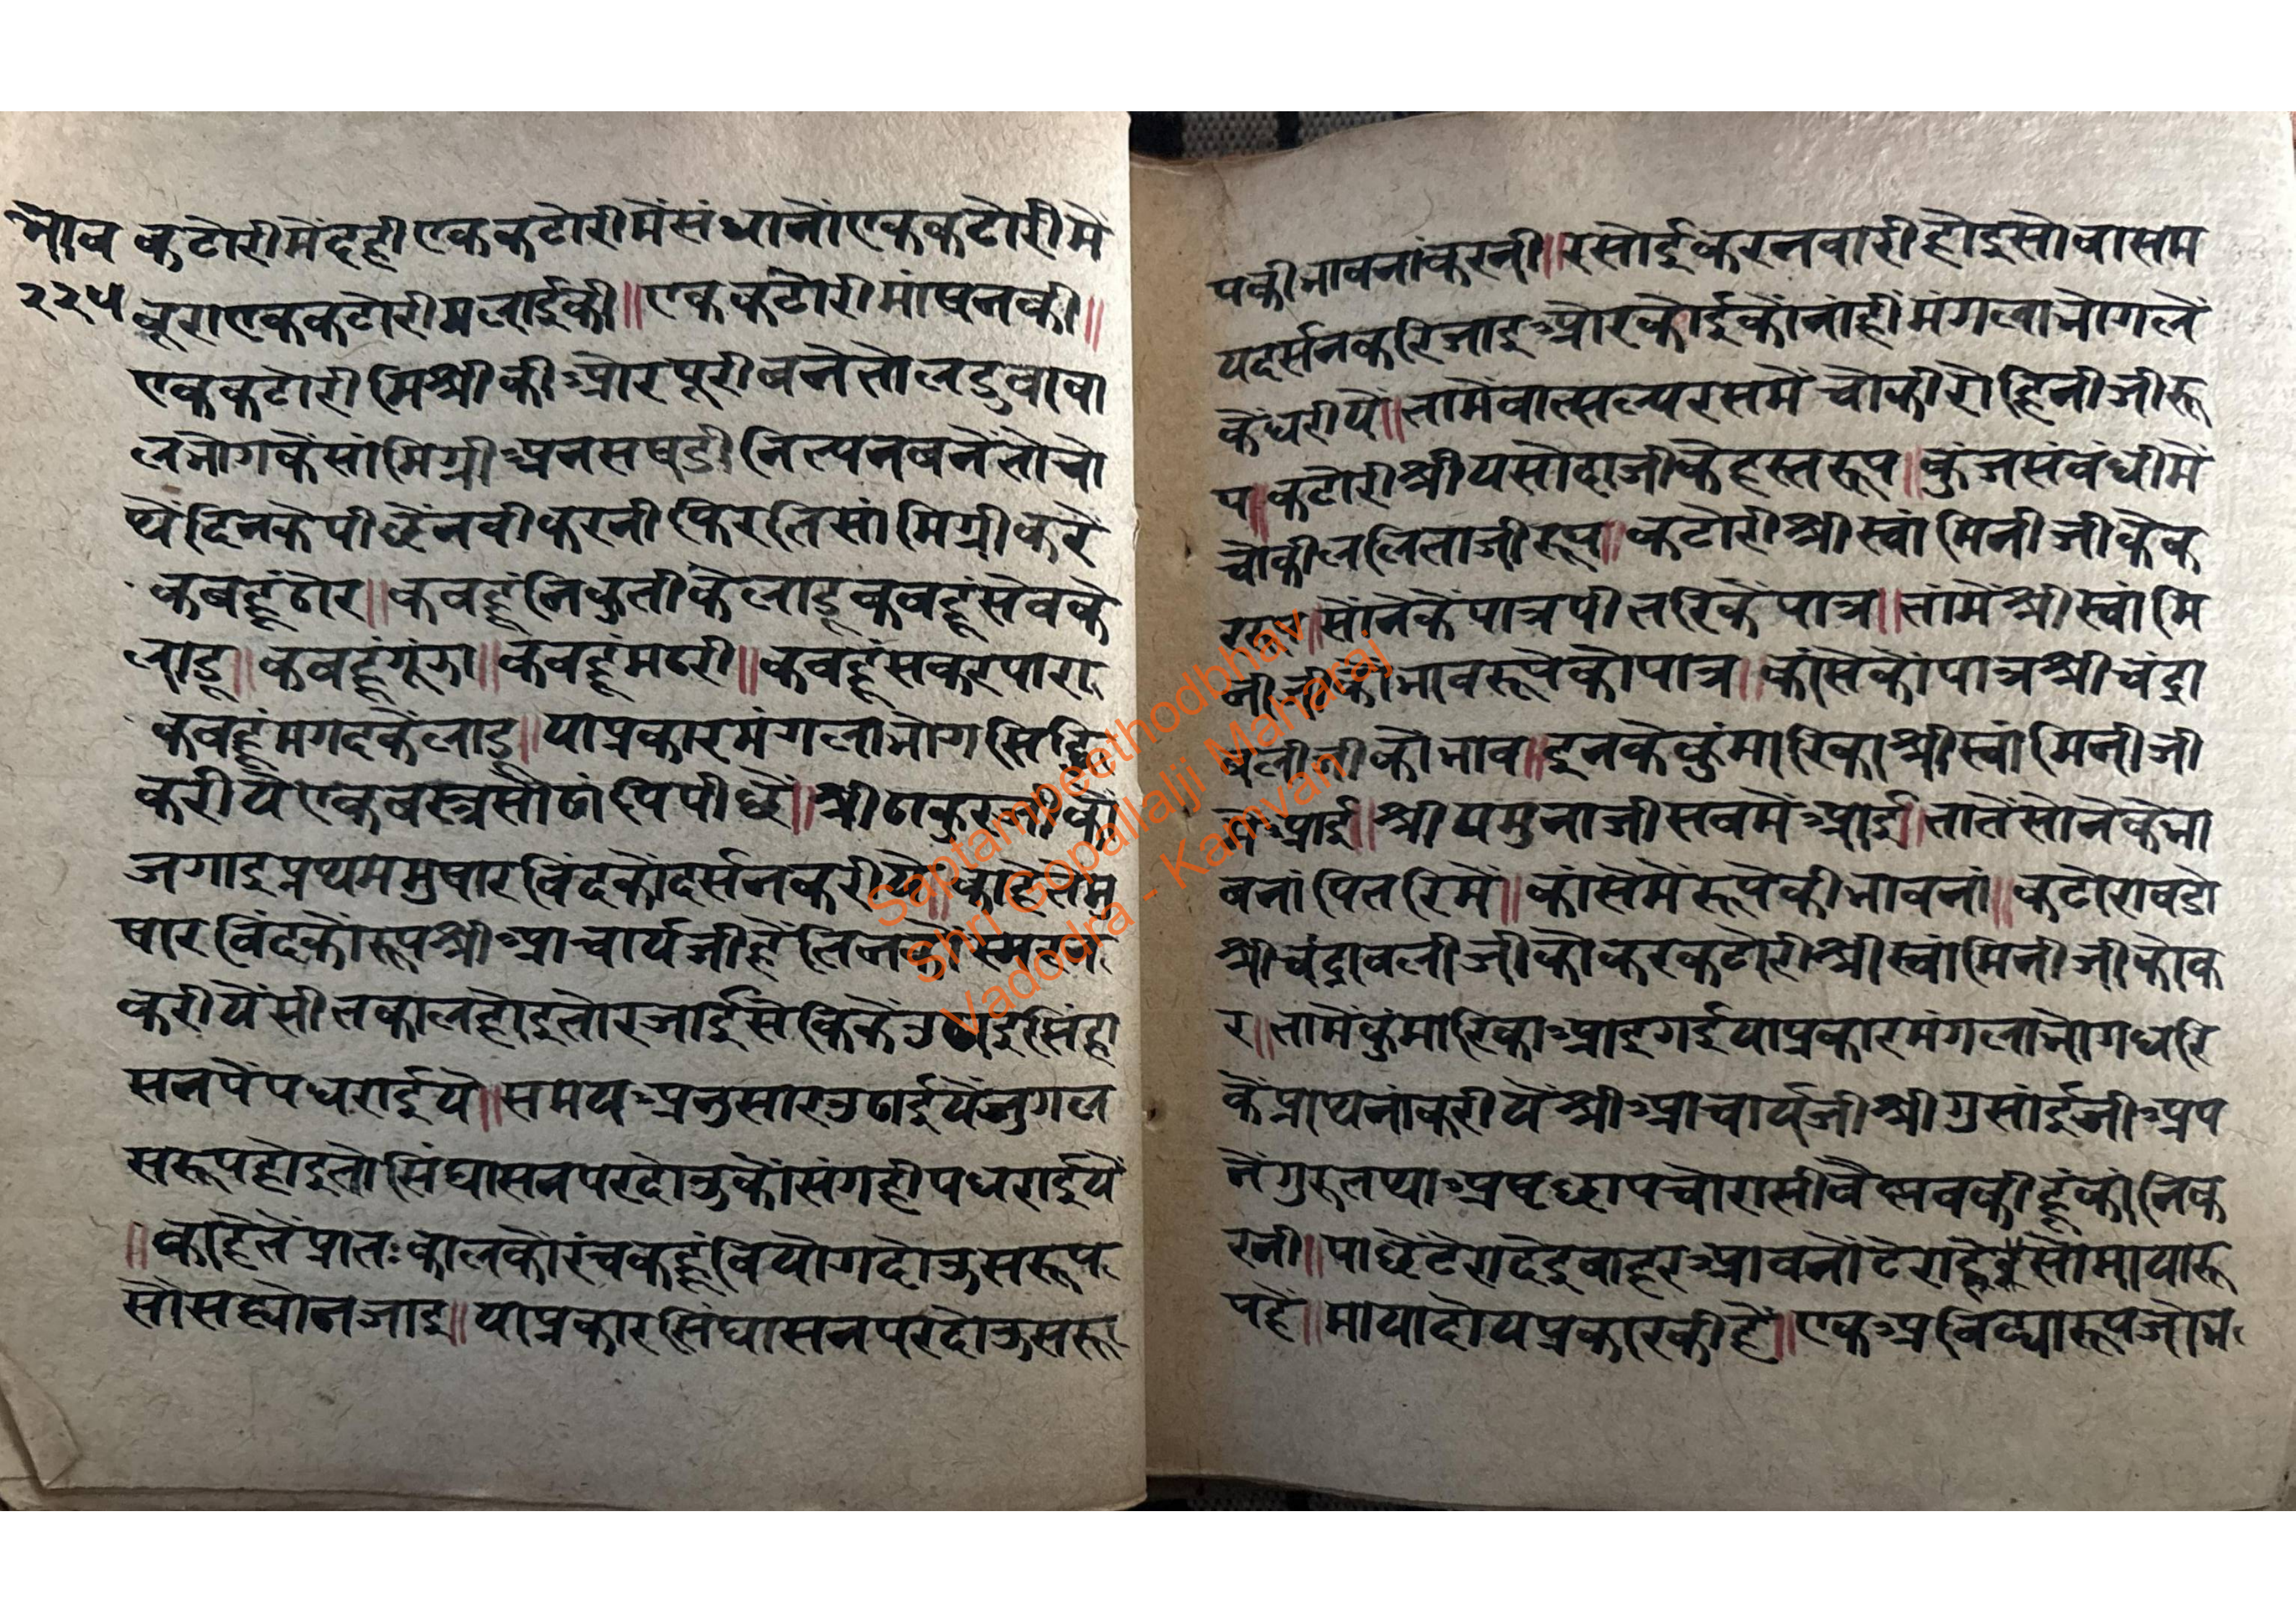 भाव
२२५
कटोरीमेंदही।एककटोरीमेंसंधानोंएककटोरीमें
बूराएककटोरीमलाईकी॥एककटोरीमांषनकी॥
एककटोरीमिश्रीकीओरपूरीबनेतोलडुवाबा
लभोगकेंसांमिग्रीअनसषडीनित्यनबनेंतोचो
थेंदिनकेपीछेंनवीकरनीफिरतिसांमिग्रीकरें
कबहूंठोर॥कबहूंनिकुतीकेलाडूकबहूंसेवके
लाडू॥कबहूंगूंझा॥कबहूंमठरी॥कबहूंसकरपारा
कबहूंमगदकेंलाडू॥याप्रकारमंगलाभोगसिद्धि
करीयेएकबस्त्रसोंढांपिपीछें॥श्रीठाकुरजीकों
जगाइप्रथममुषारविंदकोंदर्सनकरीयें॥काहेतेंमु
षारविंदकोंरूपश्रीआचार्यजीहेंतिनकोस्मरन
करीयेंसीतकालहोइतोरजाईसेकिकेंउठाइसिंहा
सनपेंपधराईयें॥समयअनुसारउठाईयेंजुगल
सरूपहोइतोसिंघासनपरदोऊकोंसंगहीपधराईयें
॥काहेतेंप्रातःकालकोंरंचकहूंवियोगदोऊसरूप
सोंसह्योनजाइ॥याप्रकारसिंघासनपरदोऊसरू
पकीभावनांकरनी॥रसोईकरनवारीहोइसोवासम
यदर्सनकरिजाइओरकोईकोंनांहींमंगलाभोगलें
केंधरीयें॥तामेंवात्सल्यरसमेंचोकीरोहिनीजीरू
प॥कटोरीश्रीयसोदाजीकेहस्तरूप॥कुंजसंबंधीमें
चोकीललिताजीरूप॥कटोरीश्रीस्वांमिनीजीकेक
सोंनेकेंपात्रपीतरिकेंपात्र॥तांमेंश्रीस्वांमि
नीजीकोंभावरूपेकोपात्र॥कांसेकोंपात्रश्रीचंद्रा
वलीजीकोंभाव॥इनकेकुंमारिकाश्रीस्वांमिनीजी
मेंआई॥श्रीयमुनाजीसबमेंआई॥तातेंसोनेकेभा
वनांपितरिमें॥कांसेमेंरूपेकीभावनां॥कटोराबडो
श्रीचंद्रावलीजीकोकरकटोरीश्रीस्वांमिनीजीकोक
र॥तामेंकुंमारिकाआइगईयाप्रकारमंगलाभोगधरि
केंप्रार्थनांकरीयेंश्रीआचार्यजीश्रीगुसांईजीअप
नेंगुरुतथाअष्टछापचोरासीवैष्णवकीहूंकांनिक
रनी॥पाछेंटेरादेइबाहरआवनोंटेराहेसोमायारू
पहें॥मायादोयप्रकारकीहें॥एकअविद्यारूपजोभ
Saptampeethodbhav
Shri Gopallalji Maharaj
Vadodra - Kamvan